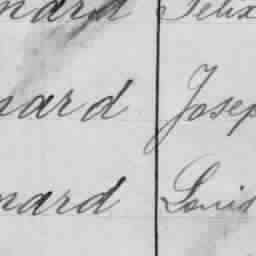 nard Felix
nard Josep
nard Louis